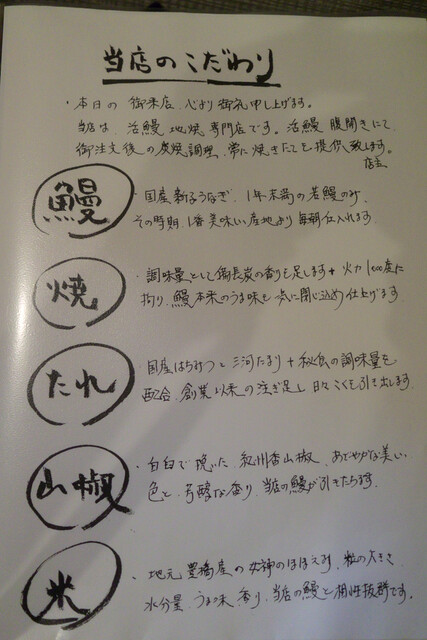 当店のこだわり
・本日の御来店、心より御礼申し上げます。
当店は、活鰻 地焼 専門店です。活鰻 腹開きにて、
御注文後の炭焼調理、常に焼きたてを提供致します。
店主
鰻
・国産 新子うなぎ、1年未満の若鰻のみ、
その時期、1番美味しい産地より毎朝仕入れます。
焼
・調味量として備長炭の香りを足します + 火力1000度に
拘り、鰻本来のうま味を一気に閉じ込め仕上げます
たれ
・国産はちみつと三河たまり + 秘伝の調味量を
配合、創業以来の注ぎ足し、日々こくを引き出します。
山椒
・石臼で挽いた、紀州香山椒、あでやかな美しい
色と、芳醇な香り、当店の鰻が引きたちます。
米
・地元 豊橋産の女神のほほえみ、粒の大きさ、
水分量、うま味、香り、当店の鰻と相性抜群です。